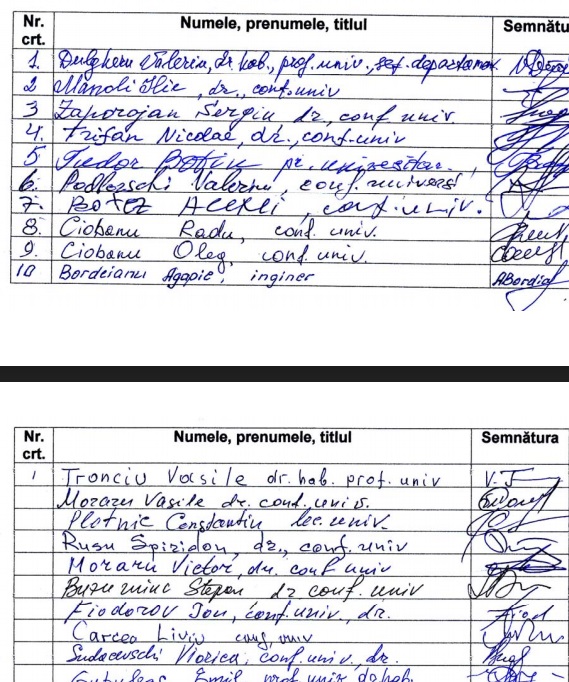 Nr. crt. Numele, prenumele, titlul Semnătu
1. Dulgheru Valeriu, dr. hab., prof. univ., șef. departament
2 Manoli Ilie, dr., conf. univ
3 Zaporojan Sergiu dr, conf univ.
4. Trifan Nicolae, dr., conf. univ
5 Tudor
6. Valeriu, conf. univers
7. Botez Alexei, conf. univ.
8. Ciobanu Radu, conf. univ.
9. Ciobanu Oleg, conf. univ.
10 Bordeianu Agapie, inginer ABordia
Nr. crt. Numele, prenumele, titlul Semnătura
1 Tronciu Vasile dr. hab. prof. univ
Moraru Vasile dr. conf. univ.
Plotnic Constantin lec. univ.
Rusu Spiridon, dr., conf. univ
Moraru Victor, dr. conf univ
Stepan dr conf. univ
Fiodorov Ion, conf. univ., dr.
Carcea Liviu conf. univ
Sudacevschi Viorica, conf. univ., dr.
Emil prof. univ. dr. hab.